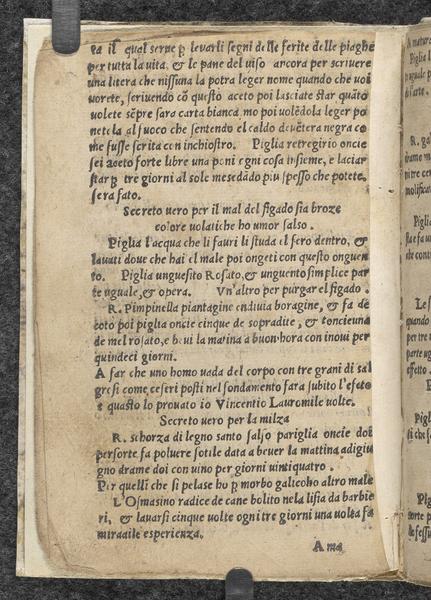 ra il qual serue p leuarli segni delle ferite delle piaghe
per tutta la vita, & le pane del uiso ancora per scriuere
una litera che nissuna la potra leger nome quando che uoi
uorete, scriuendo cō questo aceto poi lasciate star quāto
uolete sēpre sara carta bianca, mo poi uolēdola leger po
netela al fuoco che sentendo el caldo deuētera negra co
me fusse scrita con inchiostro. Piglia retregirio oncie
sei aceto forte libre una poni ogni cosa insieme, e laciar
star p tre giorni al sole mesedādo piu spesso che potete,
sera fato.
Secreto uero per il mal del figado sia broze
colore uolatiche ho umor salso .
Piglia l'acqua che li fauri li studa el fero dentro, &
lauati doue che hai el male poi ongeti con questo onguen
to. Piglia unguesito Rosato, & unguento simplice par
te uguale, & opera. Vn'altro per purgar el figado .
R. Pimpinella piantagine endiuia boragine, & fa de
coto poi piglia oncie cinque de sopradite , & toncieuna
de mel rosato, e beui la matina a buon'hora con inoui per
quindeci giorni.
A far che uno homo uada del corpo con tre grani di sal
gresi come ceseri posti nel fondamento fara subito l'efeto
e questo lo prouato io Vincentio Lauro mile uolte.
Secreto uero per la milza
R. schorza di legno santo salso pariglia oncie doi
per sorte fa poluere sotile data a beuer la mattina adigiu
gno drame doi con uino per giorni uintiquatro .
Per quelli che si pelase ho p morbo galicoho altro male
L'Osmasino radice de cane bolito nela lisia da barbie
ri, & lauarsi cinque uolte ogni tre giorni una uolta fa
miraaile esperienza.
A ma